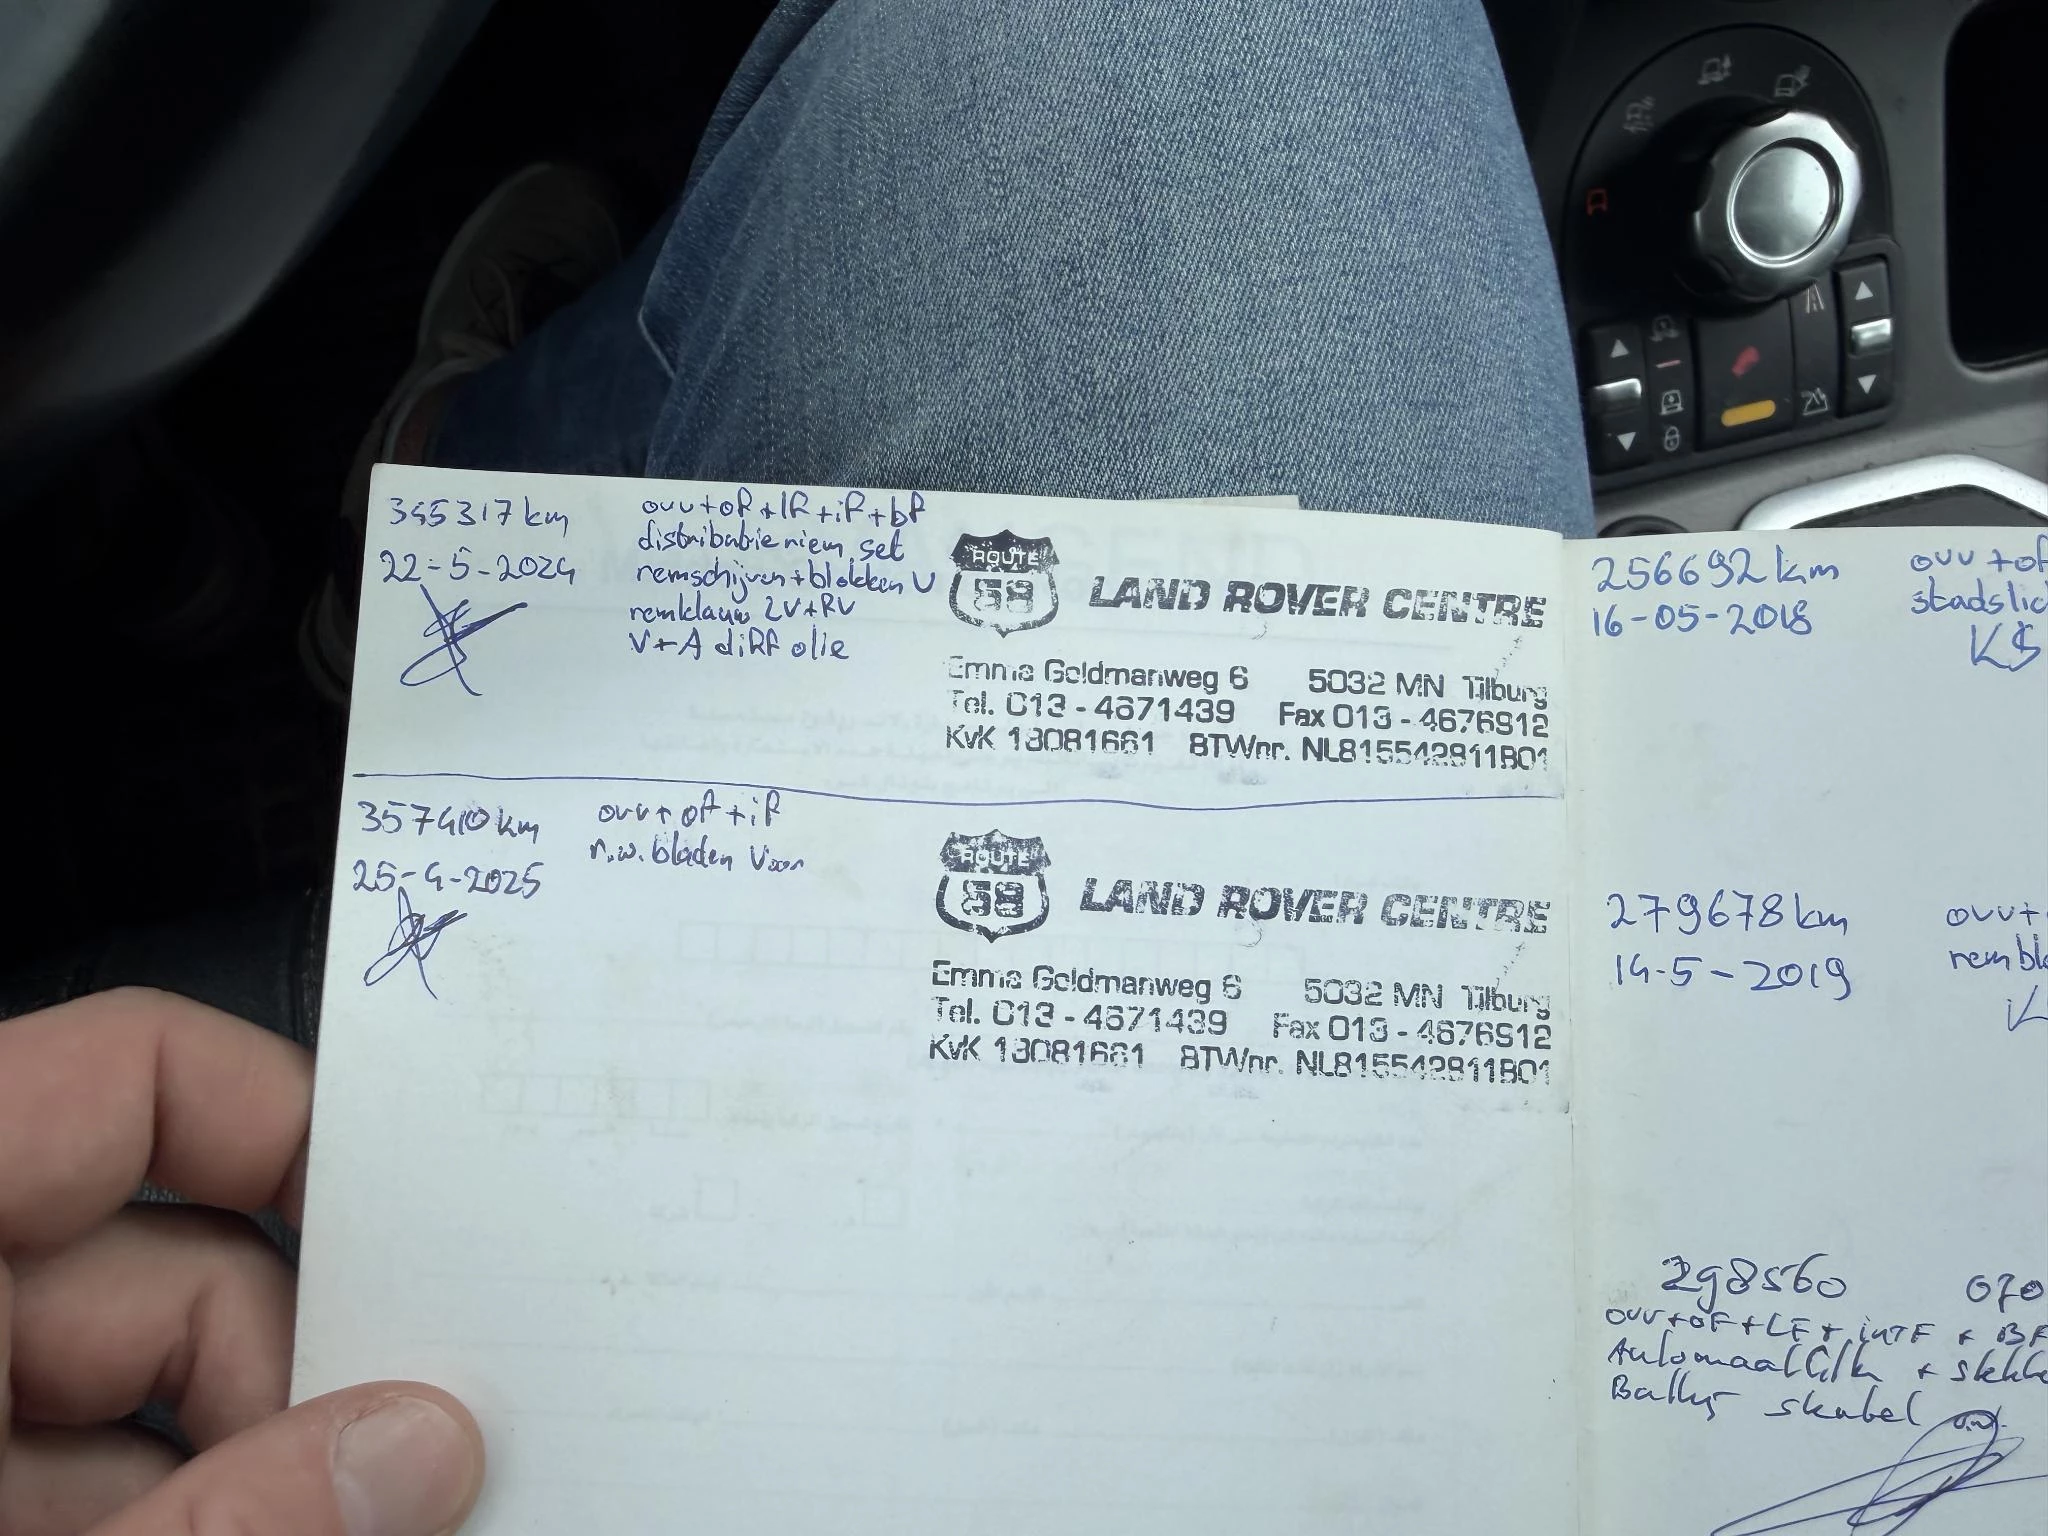 345317 km
22-5-2024
ovv+of+lf+if+bf
distributie riem set
remschijven+blokken V
remklauw LV+RV
V+A diff olie
ROUTE
58
LAND ROVER CENTRE
Emma Goldmanweg 6 5032 MN Tilburg
Tel. 013 - 4671439 Fax 013 - 4676912
KvK 18081661 BTWnr. NL815542811B01
357410 km
25-4-2025
ovv+of+if
r.w. bladen Voor
ROUTE
58
LAND ROVER CENTRE
Emma Goldmanweg 6 5032 MN Tilburg
Tel. 013 - 4671439 Fax 013 - 4676912
KvK 18081661 BTWnr. NL815542811B01
256692 km
16-05-2018
ovv+of
stadslic
KS
279678 km
14-5-2019
ovv+
rembl
298560
070
ovv+oF+LF+intF+BF
Automaat